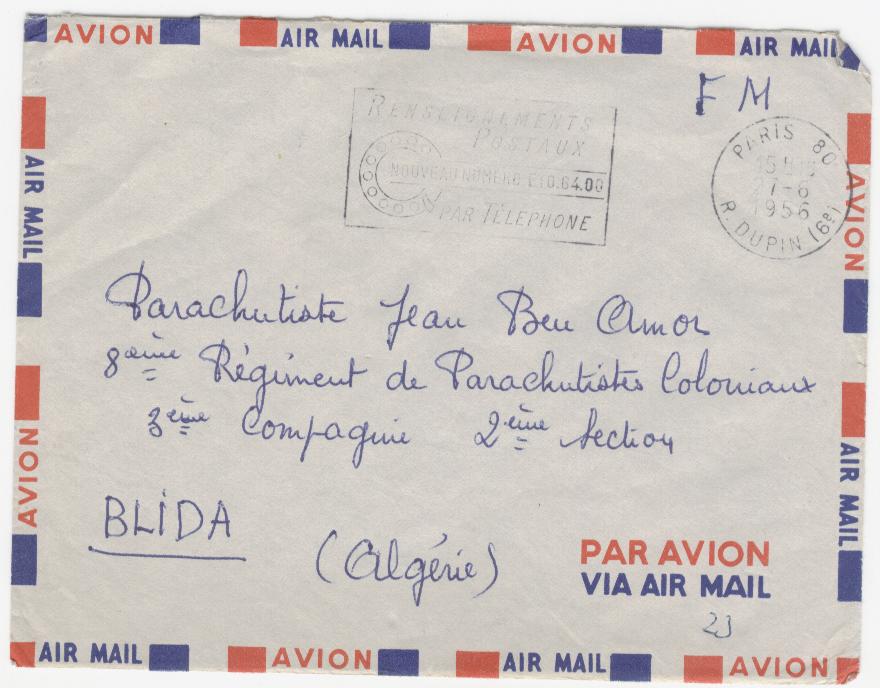 AVION AIR MAIL AVION AIR MAIL
F M
RENSEIGNEMENTS
POSTAUX
NOUVEAU NUMERO 610.64.00
PAR TÉLÉPHONE
PARIS 80
27-6
1956
R. DUPIN (6e)
AIR MAIL
AVION
AVION
AIR MAIL
Parachutiste Jean Ben Amor
8ème Régiment de Parachutistes Coloniaux
3ème Compagnie 2ème Section
BLIDA
(Algérie)
PAR AVION
VIA AIR MAIL
23
AIR MAIL AVION AIR MAIL AVION